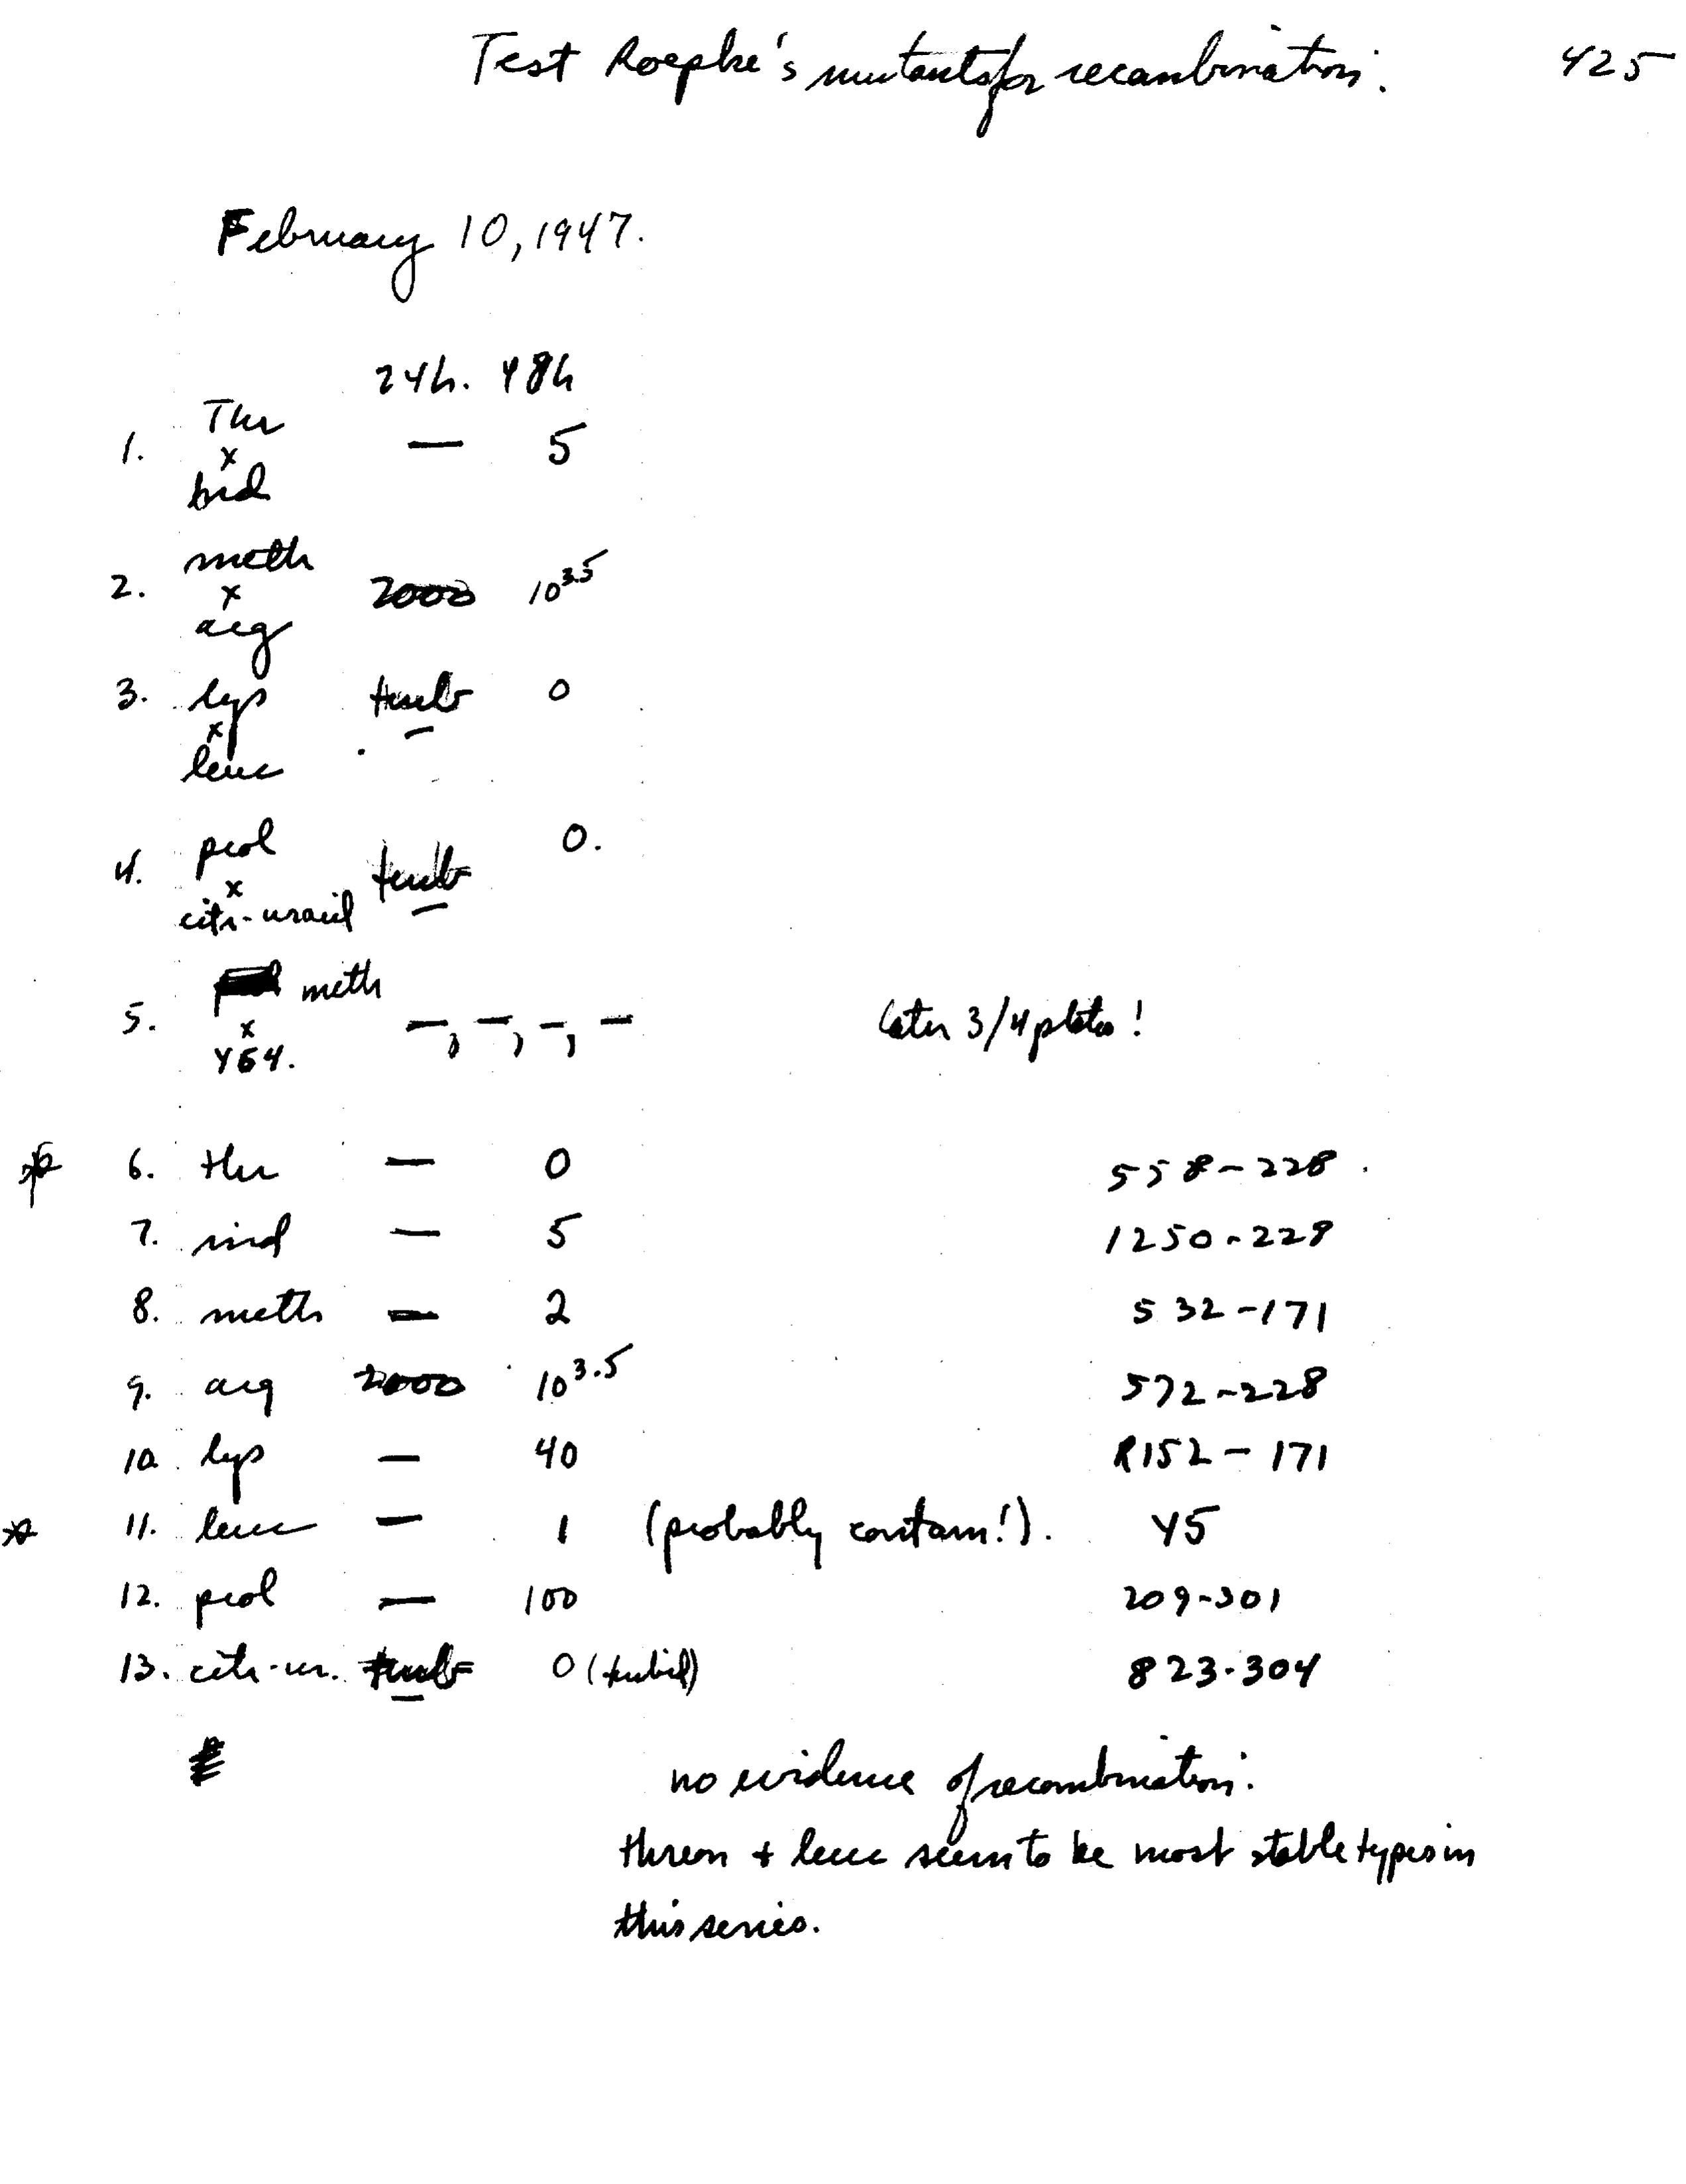 Test Roepke's mutants for recombination. 425
February 10, 1947.
24h. 48h
Thr
1. x — 5
ind
meth
2. x 2000 10^3.5
arg
3. lys turb 0
x —
leuc
prol 0.
4. x turb
citr-uracil —
meth
5. x —, —, —, — Later 3/4 plates!
Y64.
6. thr — 0 558-228.
7. ind — 5 1250-229
8. meth — 2 532-171
9. arg 2000 10^3.5 572-228
10. lys — 40 R152-171
11. leuc — 1 (probably contam!). Y5
12. prol — 100 209-301
13. citr-ur. turb — 0 (turbid) 823-304
no evidence of recombination.
threon + leuc seem to be most stable types in
this series.